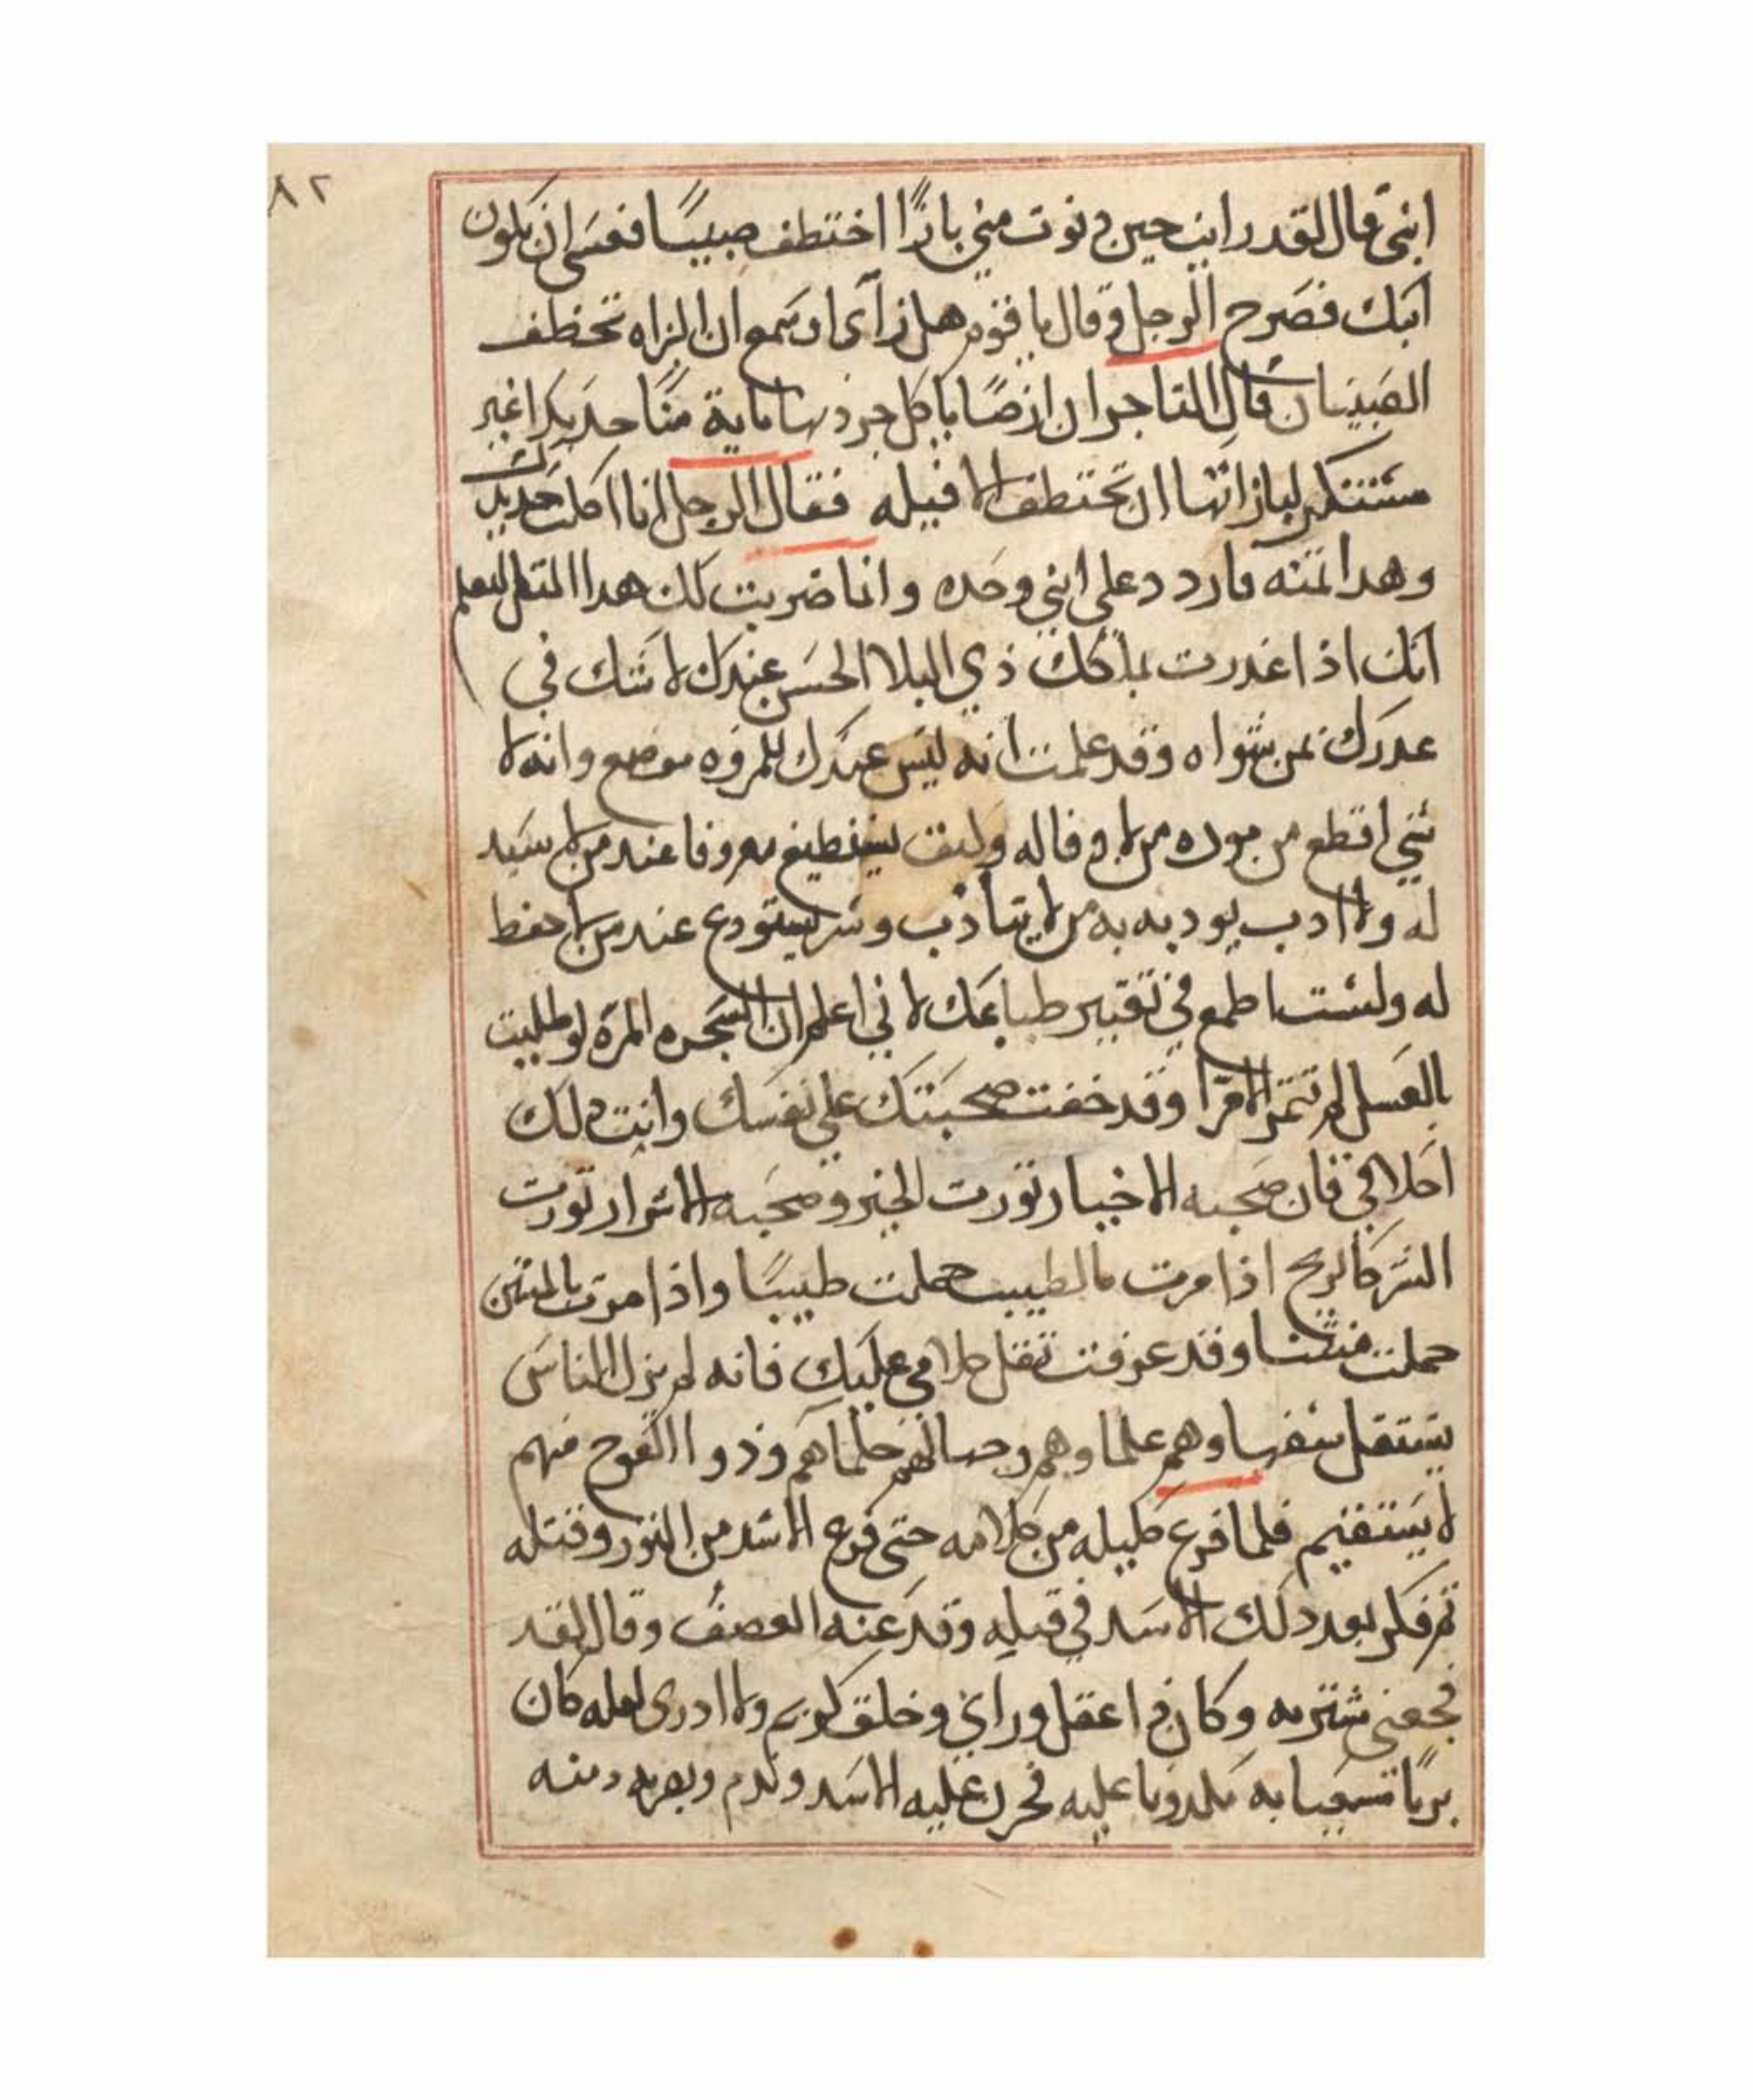 ٨٢
ابني قال لقد رايت حين دنوت مني بازًا اختطف صبيًا فعسى ان يكون
ابنك فصرخ الرجل وقال يا قوم هل رآى او سمع ان البزاه تختطف
الصبيان قال التاجر ان ارضًا ياكل جردها ماية منًا حديدا غير
مستنكر لبازاتها ان تختطف الافيله فقال الرجل انا اكلت حديدك
وهدا تمنه فاردد علي ابني وحده وانما ضربت لك هدا المتل لتعلم
انك اذا غدرت بملكك ذي البلا الحسن عندك لا شك في
غدرك بمن سواه وقد علمت انه ليس عندك للمروه موضع وانه لا
شي اقطع من موده من لا وفا له وليف يصطنع معروفا عند من لا سيد
له ولا ادب يودبه به من لا يتادب وسر يستودع عند من لا حفظ
له ولست اطمع في تغيير طباعك لاني اعلم ان الشجره المرة لو طليت
بالعسل لم تتمر الا مرا وقد خفت صحبتك على نفسك وانت دلك
اخلاقي فان صحبه الاخيار تورت الخير وصحبه الاشرار تورت
الشر كالريح اذا مرت بالطيب حملت طيبًا واذا مرت بالمنتن
حملت منتنا وقد عرفت تقل كلامي عليك فانه لم يزل الناس
يستقل سفها وهم علما وهم وجها لهم حلما هم وذووا العوج منهم
لا يستقيم فلما فرغ كليله من كلامه حتى فرغ الاسد من التور وقتله
تم فكر بعد دلك الاسد في قتله وقد عنه الغضب وقال لقد
فجعني شتربه وكان ذا عقل وراي وخلق كريم ولا ادري لعله كان
بريًا تسعيا به مكدوبا عليه فحزن عليه الاسد وندم وبصر به دمنه